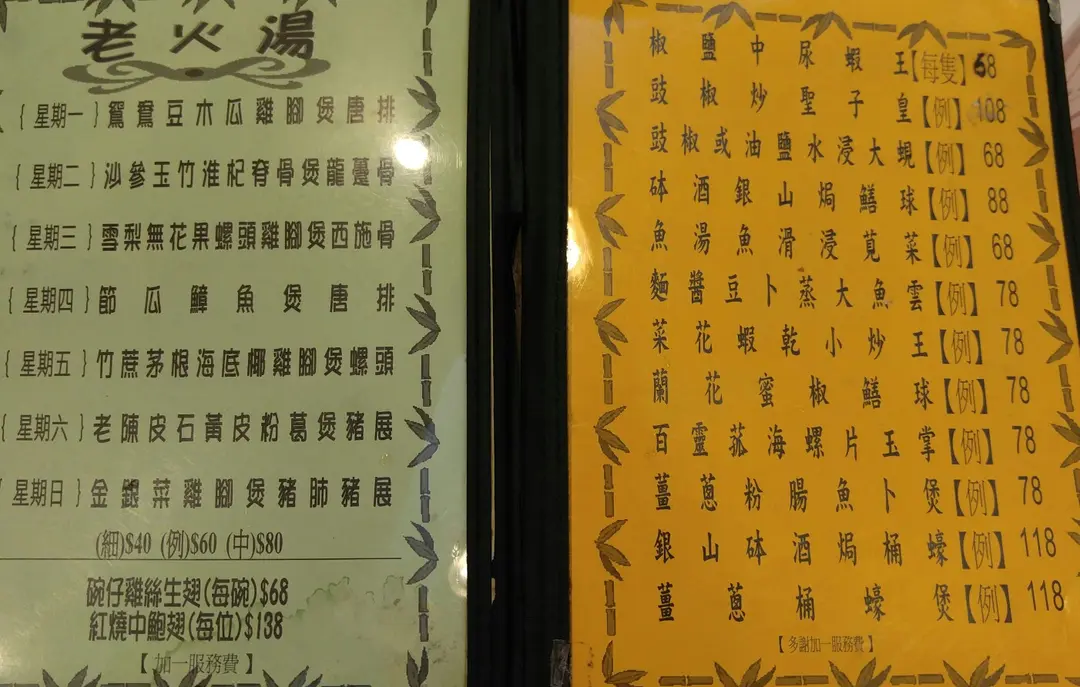 老火湯
{ 星期一 } 鴛鴦豆木瓜雞腳煲唐排
{ 星期二 } 沙參玉竹淮杞脊骨煲龍躉骨
{ 星期三 } 雪梨無花果螺頭雞腳煲西施骨
{ 星期四 } 節瓜鱆魚煲唐排
{ 星期五 } 竹蔗茅根海底椰雞腳煲螺頭
{ 星期六 } 老陳皮石黃皮粉葛煲豬展
{ 星期日 } 金銀菜雞腳煲豬肺豬展
(細)$40 (例)$60 (中)$80
碗仔雞絲生翅(每碗)$68
紅燒中鮑翅(每位)$138
【 加一服務費 】
椒鹽中尿蝦王【每隻】68
豉椒炒聖子皇【例】108
豉椒或油鹽水浸大蜆【例】68
砵酒銀山焗鱔球【例】88
魚湯魚滑浸莧菜【例】68
麵醬豆卜蒸大魚雲【例】78
菜花蝦乾小炒王【例】78
蘭花蜜椒鱔球【例】78
百靈菰海螺片玉掌【例】78
薑蔥粉腸魚卜煲【例】78
銀山砵酒焗桶蠔【例】118
薑蔥桶蠔煲【例】118
【 多謝加一服務費 】